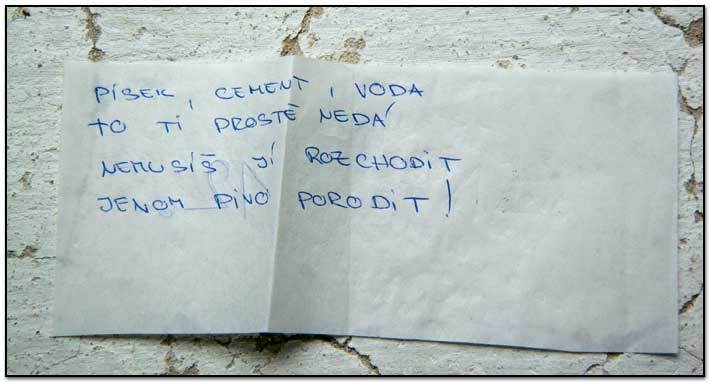 PÍSEK, CEMENT, VODA
TO TI PROSTĚ NEDÁ
NEMUSÍŠ JÍ ROZCHODIT
JENOM PIVO PORODIT!